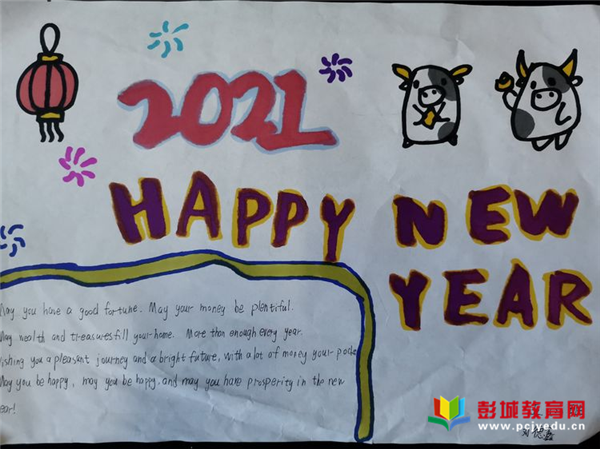 2021
HAPPY NEW
YEAR
May you have a good fortune. May your money be plentiful.
May wealth and treasures fill your home. More than enough every year.
ishing you a pleasant journey and a bright future, with a lot of money your pocke
May you be happy, may you be happy, and may you have prosperity in the new
ear!
彭城教育网
www.pcjyedu.cn